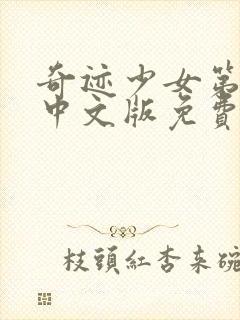 奇迹少女第
中文版免費
枝頭紅杏春碗